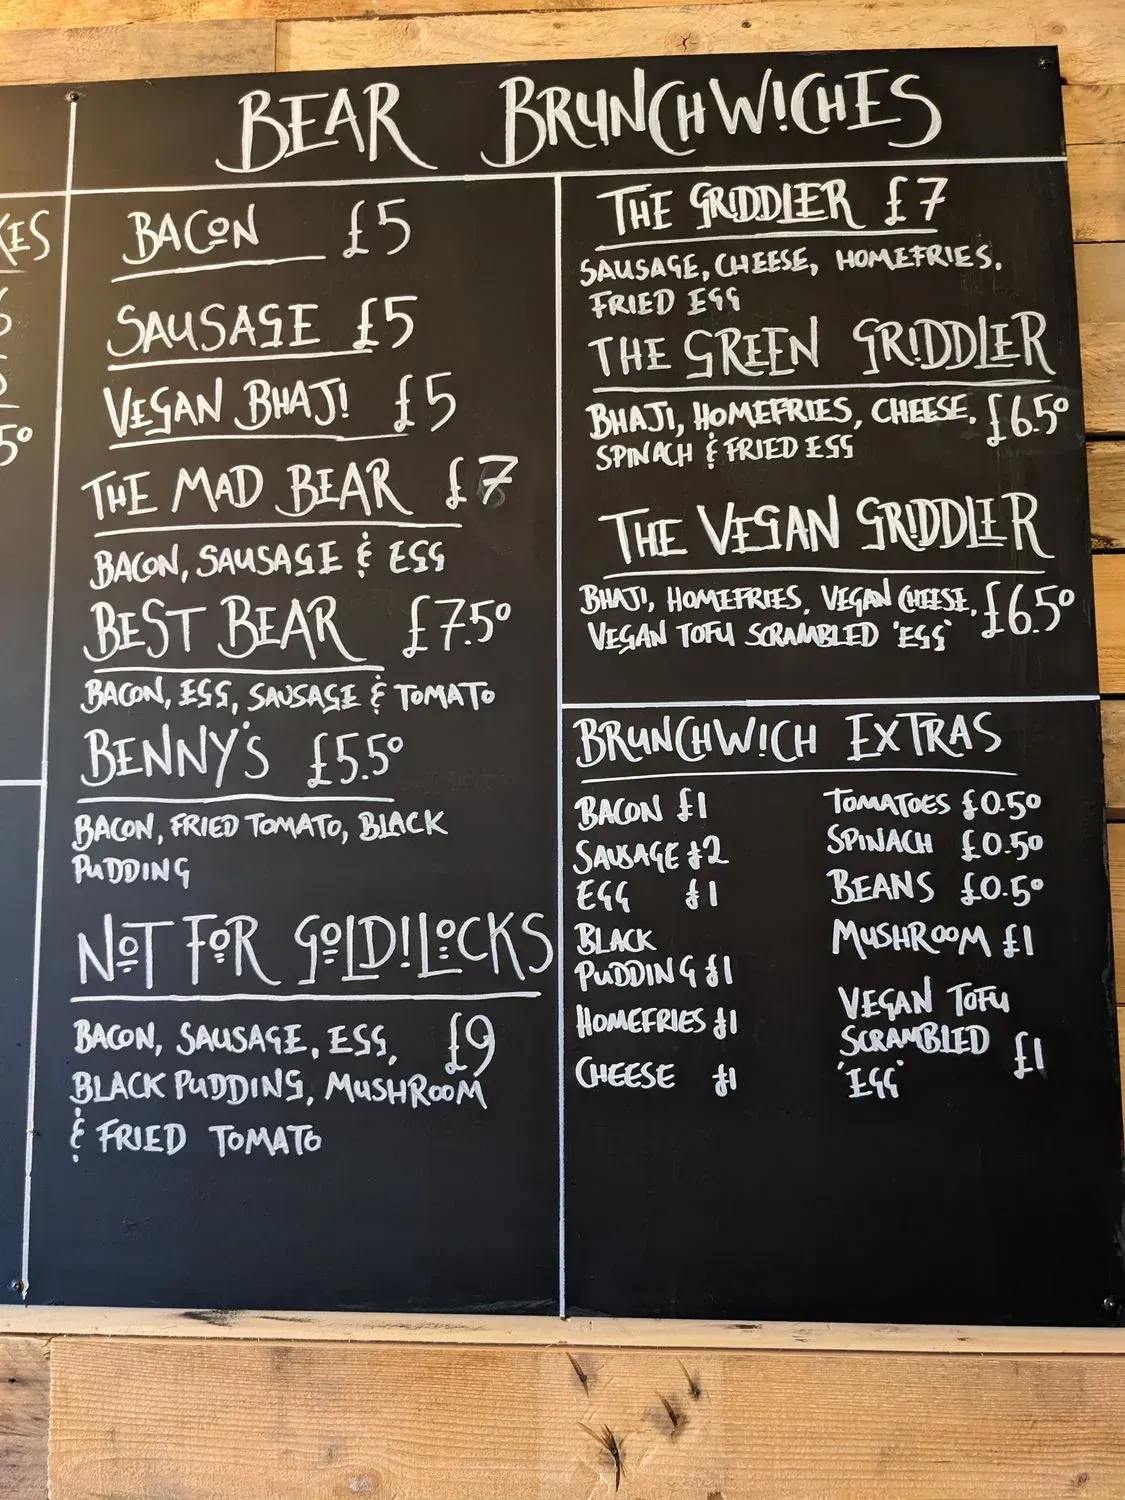 BEAR BRUNCHW!CHES
KES
5º
BACON £5
SAUSAGE £5
VEGAN BHAJI £5
THE MAD BEAR £7
BACON, SAUSAGE & EGG
BEST BEAR £7.5º
BACON, EGG, SAUSAGE & TOMATO
BENNY'S £5.5º
BACON, FRIED TOMATO, BLACK
PUDDING
NOT FOR GOLD!LOCKS
BACON, SAUSAGE, EGG, £9
BLACK PUDDING, MUSHROOM
& FRIED TOMATO
THE GRIDDLER £7
SAUSAGE, CHEESE, HOMEFRIES,
FRIED EGG
THE GREEN GR!DDLER
BHAJI, HOMEFRIES, CHEESE, £6.5º
SPINACH & FRIED EGG
THE VEGAN GR!DDLER
BHAJI, HOMEFRIES, VEGAN CHEESE, £6.5º
VEGAN TOFU SCRAMBLED 'EGG'
BRUNCHW!CH EXTRAS
BACON £1
SAUSAGE £2
EGG £1
BLACK
PUDDING £1
HOMEFRIES £1
CHEESE £1
TOMATOES £0.5º
SPINACH £0.5º
BEANS £0.5º
MUSHROOM £1
VEGAN TOFU
SCRAMBLED £1
'EGG'